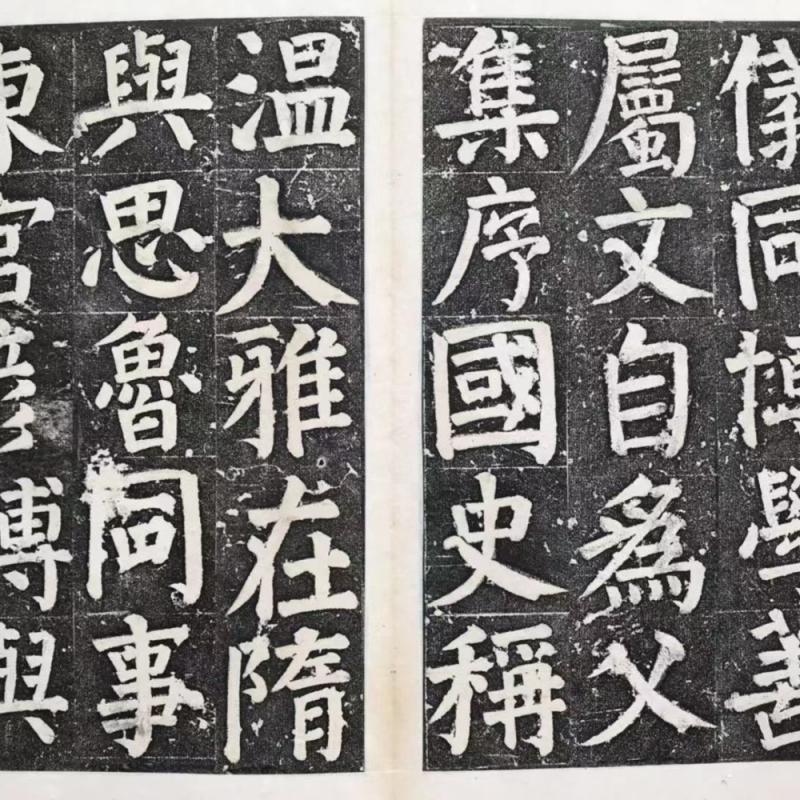 儀同博學善
屬文自爲父
集序國史稱
温大雅在隋
與思魯同事
東宮彥博與